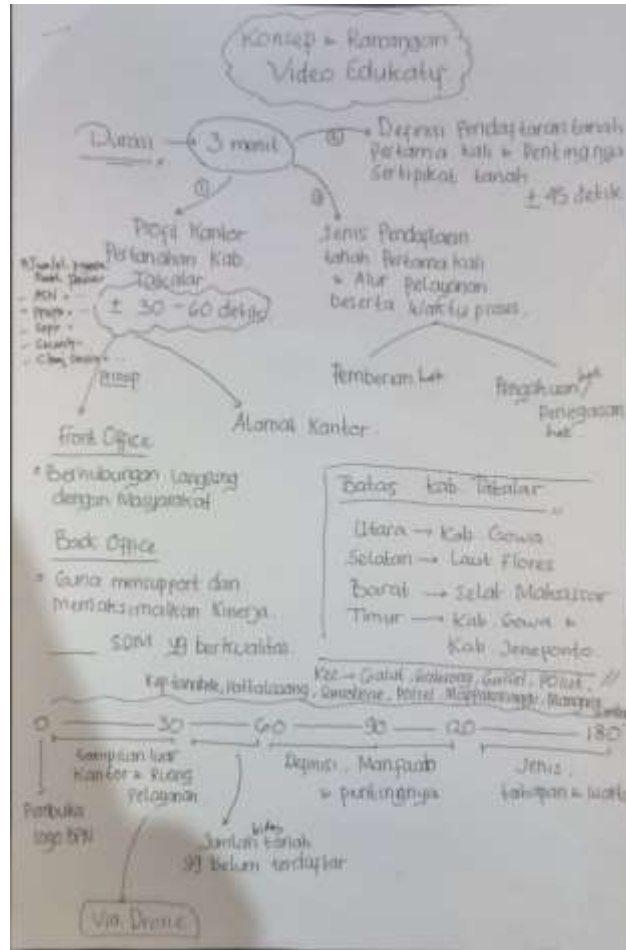 Konsep & Rancangan
Video Edukatif
Durasi → 3 menit
② Depinisi Pendaftaran tanah
Pertama kali & Pentingnya
Sertipikat tanah
± 45 detik
①
Profil Kantor
Pertanahan Kab.
Takalar
± 30 - 60 detik
- ASN
- Security
③
Jenis Pendaftaran
tanah Pertama kali
& Alur Pelayanan
beserta Waktu proses.
Pemberian hak
Pengakuan / Penegasan
hak
Alamat Kantor
Front Office
* Berhubungan Langsung
dengan Masyarakat
Back Office
* Guna mensupport dan
memaksimalkan Kinerja
SDM yg berkualitas.
Batas kab. Takalar
Utara → Kab. Gowa
Selatan → Laut Flores
Barat → Selat Makassar
Timur → Kab. Gowa &
Kab. Jeneponto
Kec → Galut, Galesong, Galsel, Polut,
Pattallassang, Polsel, Mappakasunggu
0 30 60 90 120 180
Tampilan luar
Kantor & Ruang
Pelayanan
Depinisi, Manfaat
& pentingnya
Jenis,
tahapan & waktu
Pembuka
logo BPN
Jumlah bidang tanah
yg belum terdaftar
Via Drone